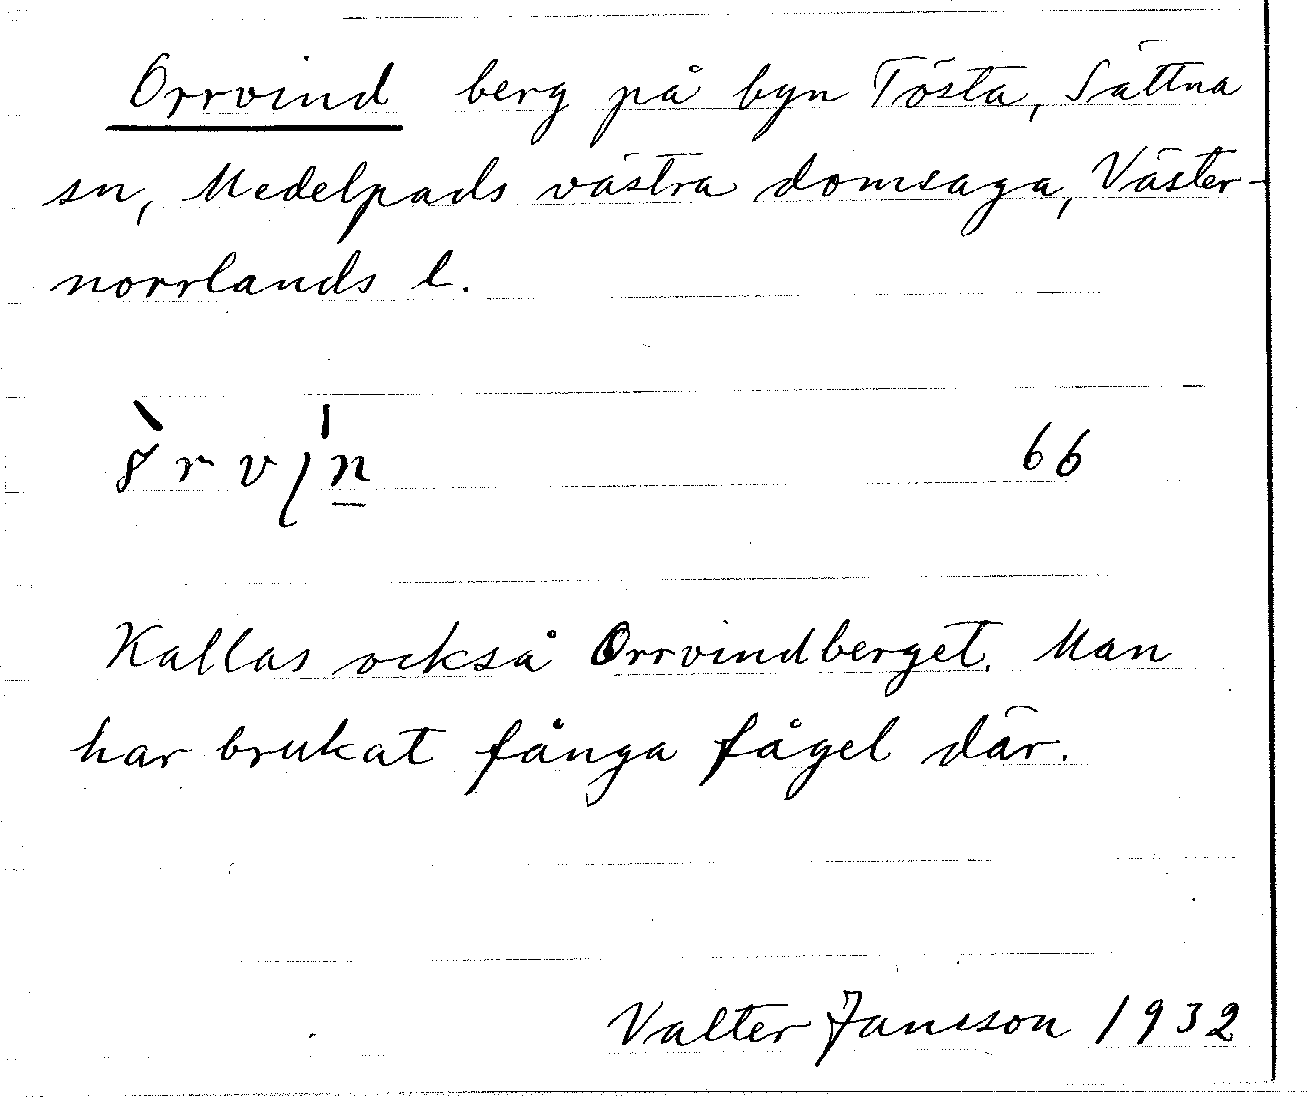 Orrvind berg på byn Tösta, Sättna
sn, Medelpads västra domsaga, Väster-
norrlands l.
66
Kallas också Orrvindberget. Man
har brukat fånga fågel där.
Valter Jansson 1932